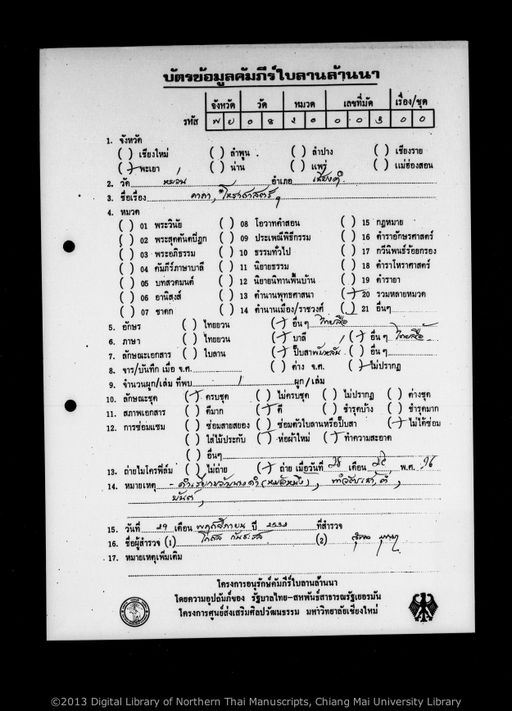 บัตรข้อมูลคัมภีร์ใบลานล้านนา
จังหวัด วัด หมวด เลขที่มัด เรื่อง/ชุด
รหัส พ ย ๐ ๘ ๐ ๐ ๐ ๐
1. จังหวัด
( ) เชียงใหม่ ( ) ลำพูน ( ) ลำปาง ( ) เชียงราย
(/) พะเยา ( ) น่าน ( ) แพร่ ( ) แม่ฮ่องสอน
2. วัด อำเภอ เชียงคำ
3. ชื่อเรื่อง คาถา, โหราศาสตร์
4. หมวด
( ) 01 พระวินัย ( ) 08 โอวาทคำสอน ( ) 15 กฎหมาย
( ) 02 พระสุตตันตปิฎก ( ) 09 ประเพณีพิธีกรรม ( ) 16 ตำราอักษรศาสตร์
( ) 03 พระอภิธรรม ( ) 10 ธรรมทั่วไป ( ) 17 กวีนิพนธ์ร้อยกรอง
( ) 04 คัมภีร์ภาษาบาลี ( ) 11 นิยายธรรม ( ) 18 ตำราโหราศาสตร์
( ) 05 บทสวดมนต์ ( ) 12 นิยายนิทานพื้นบ้าน ( ) 19 ตำรายา
( ) 06 อานิสงส์ ( ) 13 ตำนานพุทธศาสนา (/) 20 รวมหลายหมวด
( ) 07 ชาดก ( ) 14 ตำนานเมือง/ราชวงศ์ ( ) 21 อื่นๆ
5. อักษร ( ) ไทยยวน (/) อื่นๆ ไทยลื้อ
6. ภาษา ( ) ไทยยวน (/) บาลี (/) อื่นๆ ไทยลื้อ
7. ลักษณะเอกสาร ( ) ใบลาน (/) ปั๊บสา ( ) อื่นๆ
8. จาร/บันทึก เมื่อ จ.ศ. ( ) ค่าง จ.ศ. (/) ไม่ปรากฏ
9. จำนวนผูก/เล่ม ที่พบ 1 ผูก / เล่ม
10. ลักษณะชุด (/) ครบชุด ( ) ไม่ครบชุด ( ) ไม่ปรากฏ ( ) ต่างชุด
11. สภาพเอกสาร ( ) ดีมาก (/) ดี ( ) ชำรุดบ้าง ( ) ชำรุดมาก
12. การซ่อมแซม ( ) ซ่อมสายสยอง ( ) ซ่อมตัวใบลานหรือปั๊บสา (/) ไม่ได้ซ่อม
( ) ใส่ไม้ประกับ ( ) ห่อผ้าใหม่ (/) ทำความสะอาด
( ) อื่นๆ
13. ถ่ายไมโครฟิล์ม ( ) ไม่ถ่าย (/) ถ่าย เมื่อวันที่ เดือน พ.ศ. 36
14. หมายเหตุ
15. วันที่ 29 เดือน พฤศจิกายน ปี ที่สำรวจ
16. ชื่อผู้สำรวจ (1) (2)
17. หมายเหตุเพิ่มเติม
โครงการอนุรักษ์คัมภีร์ใบลานล้านนา
โดยความอุปถัมภ์ของ รัฐบาลไทย-สหพันธ์สาธารณรัฐเยอรมัน
โครงการศูนย์ส่งเสริมศิลปวัฒนธรรม มหาวิทยาลัยเชียงใหม่
©2013 Digital Library of Northern Thai Manuscripts, Chiang Mai University Library